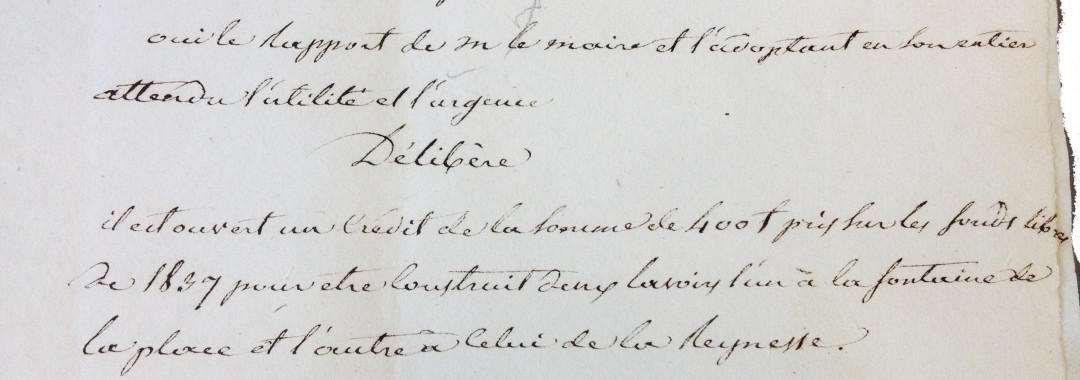 ouïe le rapport de m le maire et l'adoptant en son entier
attendu l'utilité et l'urgence
Délibère
il est ouvert un Crédit de la somme de 400f pris sur les fonds libres
de 1837 pour etre Construit deux lavoirs l'un à la fontaine de
la place et l'autre à Celui de la Reynesse.